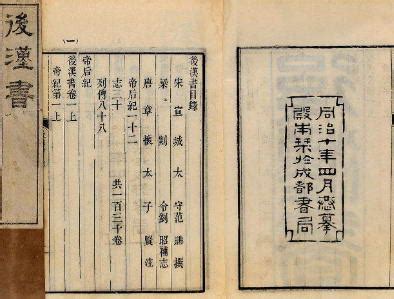 同治十年四月恭摹
殿本栞於成都書局
後漢書目錄
宋宣城太守范曄撰
梁剡令劉昭補志
唐章懷太子賢注
帝后紀一十二
志三十 共一百三十卷
列傳八十八
帝后紀
後漢書卷一上
帝紀第一上
後漢書